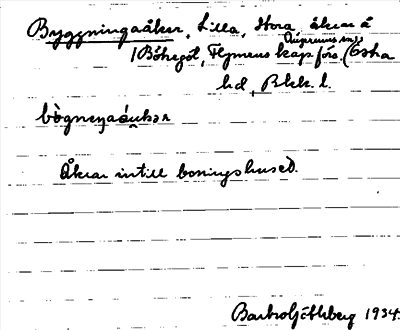 Byggningaåker, Lilla, Stora, åkrar å
Bökegöl, Flymens kap. förs. (Östra
hd, Blek. l.
Åkrar intill boningshuset.
Bertil Göthberg 1934.